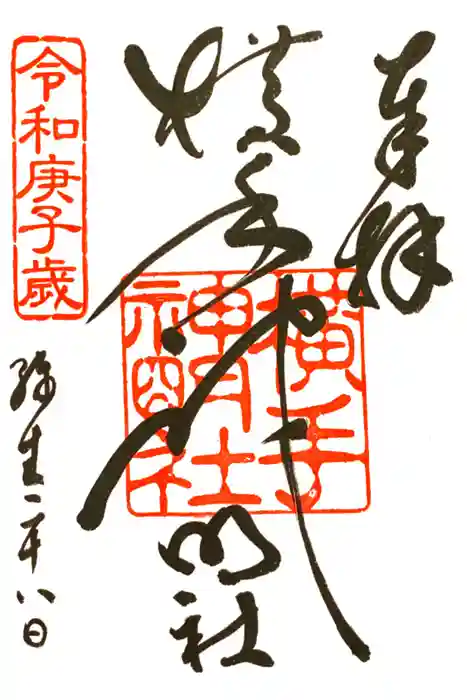 奉拝
横手神明社
横手
神明社
令和庚子歳
弥生二十八日